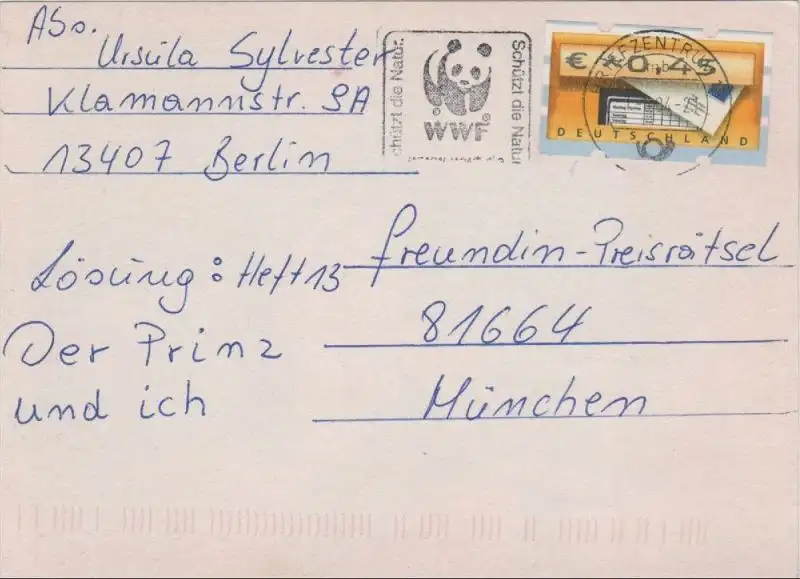 ABs.
Ursula Sylvester
Klamannstr. 9A
13407 Berlin
Schützt die Natur
WWF
Schützt die Natur
BRIEFZENTRUM
€ **0,45
DEUTSCHLAND
Freundin-Preisrätsel
81664
München
Lösung: Heft 13
Der Prinz
und ich